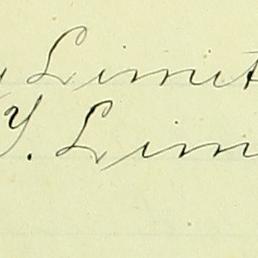 y Limit
Y. Lim